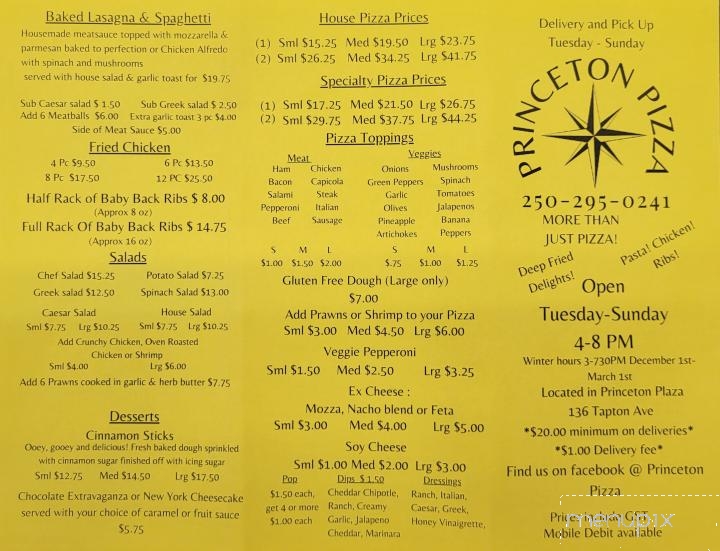 Baked Lasagna & Spaghetti
Housemade meatsauce topped with mozzarella &
parmesan baked to perfection or Chicken Alfredo
with spinach and mushrooms
served with house salad & garlic toast for $19.75
Sub Caesar salad $ 1.50 Sub Greek salad $ 2.50
Add 6 Meatballs $6.00 Extra garlic toast 3 pc $4.00
Side of Meat Sauce $5.00
Fried Chicken
4 Pc $9.50 6 Pc $13.50
8 Pc $17.50 12 PC $25.50
Half Rack of Baby Back Ribs $ 8.00
(Approx 8 oz)
Full Rack Of Baby Back Ribs $ 14.75
(Approx 16 oz)
Salads
Chef Salad $15.25 Potato Salad $7.25
Greek salad $12.50 Spinach Salad $13.00
Caesar Salad House Salad
Sml $7.75 Lrg $10.25 Sml $7.75 Lrg $10.25
Add Crunchy Chicken, Oven Roasted
Chicken or Shrimp
Sml $4.00 Lrg $6.00
Add 6 Prawns cooked in garlic & herb butter $7.75
Desserts
Cinnamon Sticks
Ooey, gooey and delicious! Fresh baked dough sprinkled
with cinnamon sugar finished off with icing sugar
Sml $12.75 Med $14.50 Lrg $17.50
Chocolate Extravaganza or New York Cheesecake
served with your choice of caramel or fruit sauce
$5.75
House Pizza Prices
(1) Sml $15.25 Med $19.50 Lrg $23.75
(2) Sml $26.25 Med $34.25 Lrg $41.75
Specialty Pizza Prices
(1) Sml $17.25 Med $21.50 Lrg $26.75
(2) Sml $29.75 Med $37.75 Lrg $44.25
Pizza Toppings
Meat Veggies
Ham Chicken Onions Mushrooms
Bacon Capicola Green Peppers Spinach
Salami Steak Garlic Tomatoes
Pepperoni Italian Olives Jalapenos
Beef Sausage Pineapple Banana
Artichokes Peppers
S M L S M L
$1.00 $1.50 $2.00 $.75 $1.00 $1.25
Gluten Free Dough (Large only)
$7.00
Add Prawns or Shrimp to your Pizza
Sml $3.00 Med $4.50 Lrg $6.00
Veggie Pepperoni
Sml $1.50 Med $2.50 Lrg $3.25
Ex Cheese :
Mozza, Nacho blend or Feta
Sml $3.00 Med $4.00 Lrg $5.00
Soy Cheese
Sml $1.00 Med $2.00 Lrg $3.00
Pop Dips $1.50 Dressings
$1.50 each, Cheddar Chipotle, Ranch, Italian,
get 4 or more Ranch, Creamy Caesar, Greek,
$1.00 each Garlic, Jalapeno Honey Vinaigrette,
Cheddar, Marinara
Delivery and Pick Up
Tuesday - Sunday
PRINCETON PIZZA
250-295-0241
MORE THAN
JUST PIZZA!
Deep Fried
Delights!
Pasta! Chicken!
Ribs!
Open
Tuesday-Sunday
4-8 PM
Winter hours 3-730PM December 1st-
March 1st
Located in Princeton Plaza
136 Tapton Ave
*$20.00 minimum on deliveries*
*$1.00 Delivery fee*
Find us on facebook @ Princeton
Pizza
Prices include GST
menupix
Mobile Debit available